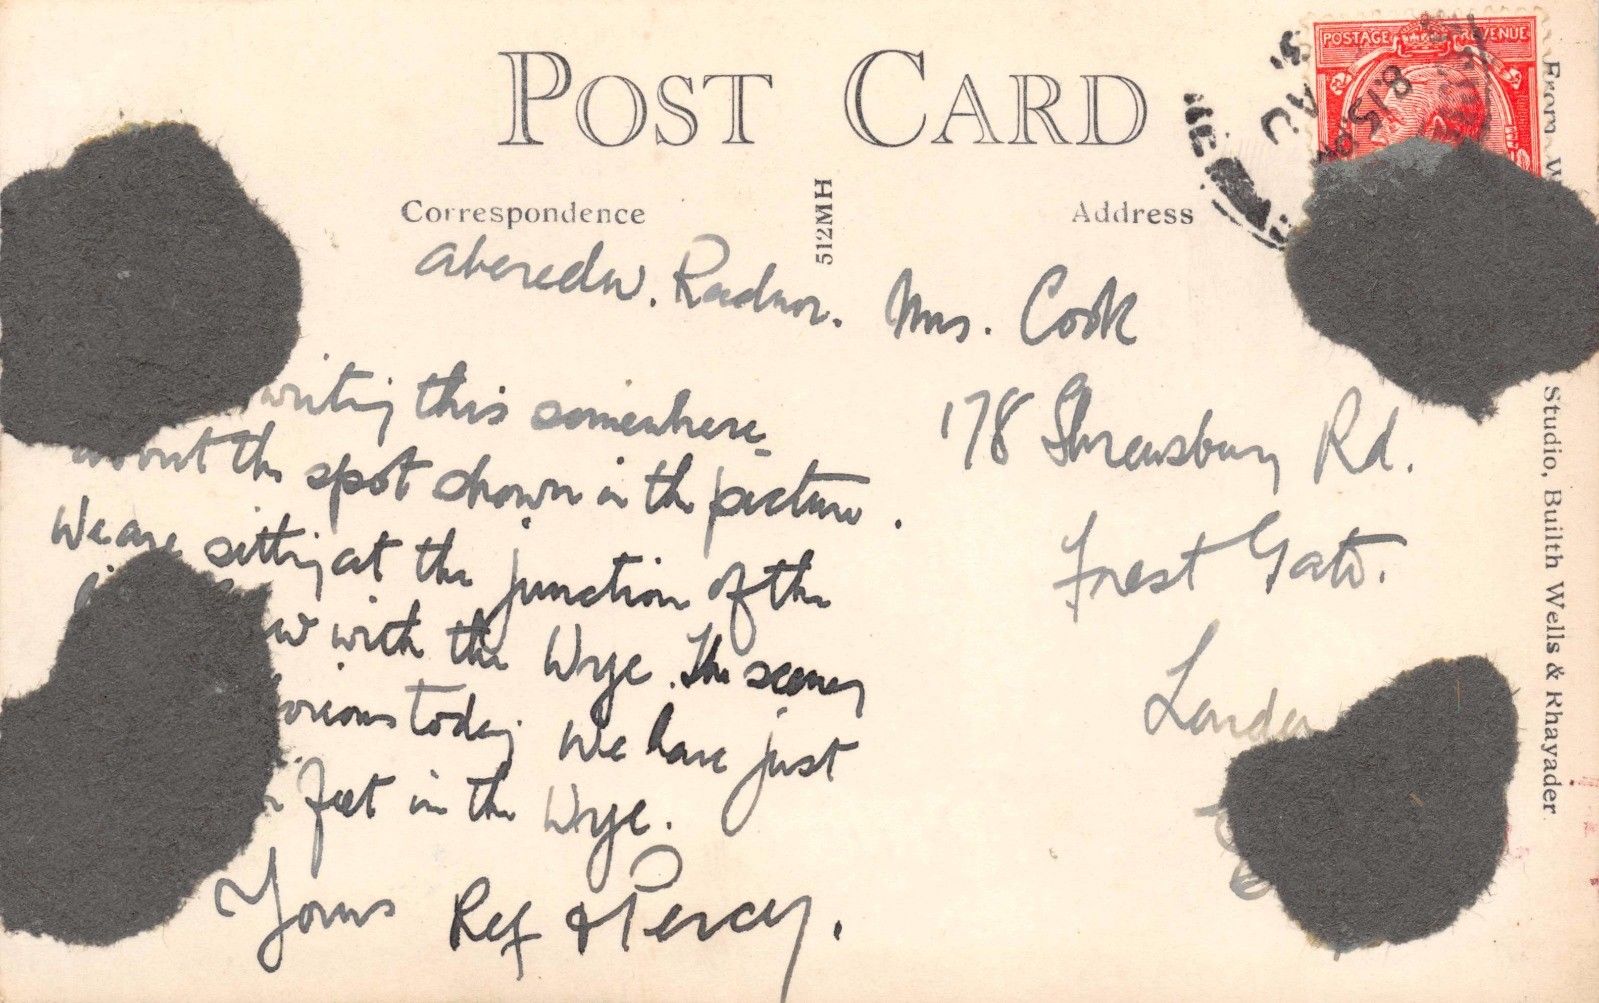 POST CARD
POSTAGE REVENUE
8.15
Correspondence
512MH
Address
Aberedw. Radnor.
writing this somewhere
about the spot shown in the picture.
We are sitting at the junction of the
with the Wye. The scenery
today. We have just
feet in the Wye.
Yours Ref & Percy.
Mrs. Cook
178 Shrewsbury Rd.
Forest Gate.
London
From
Studio, Builth Wells & Rhayader